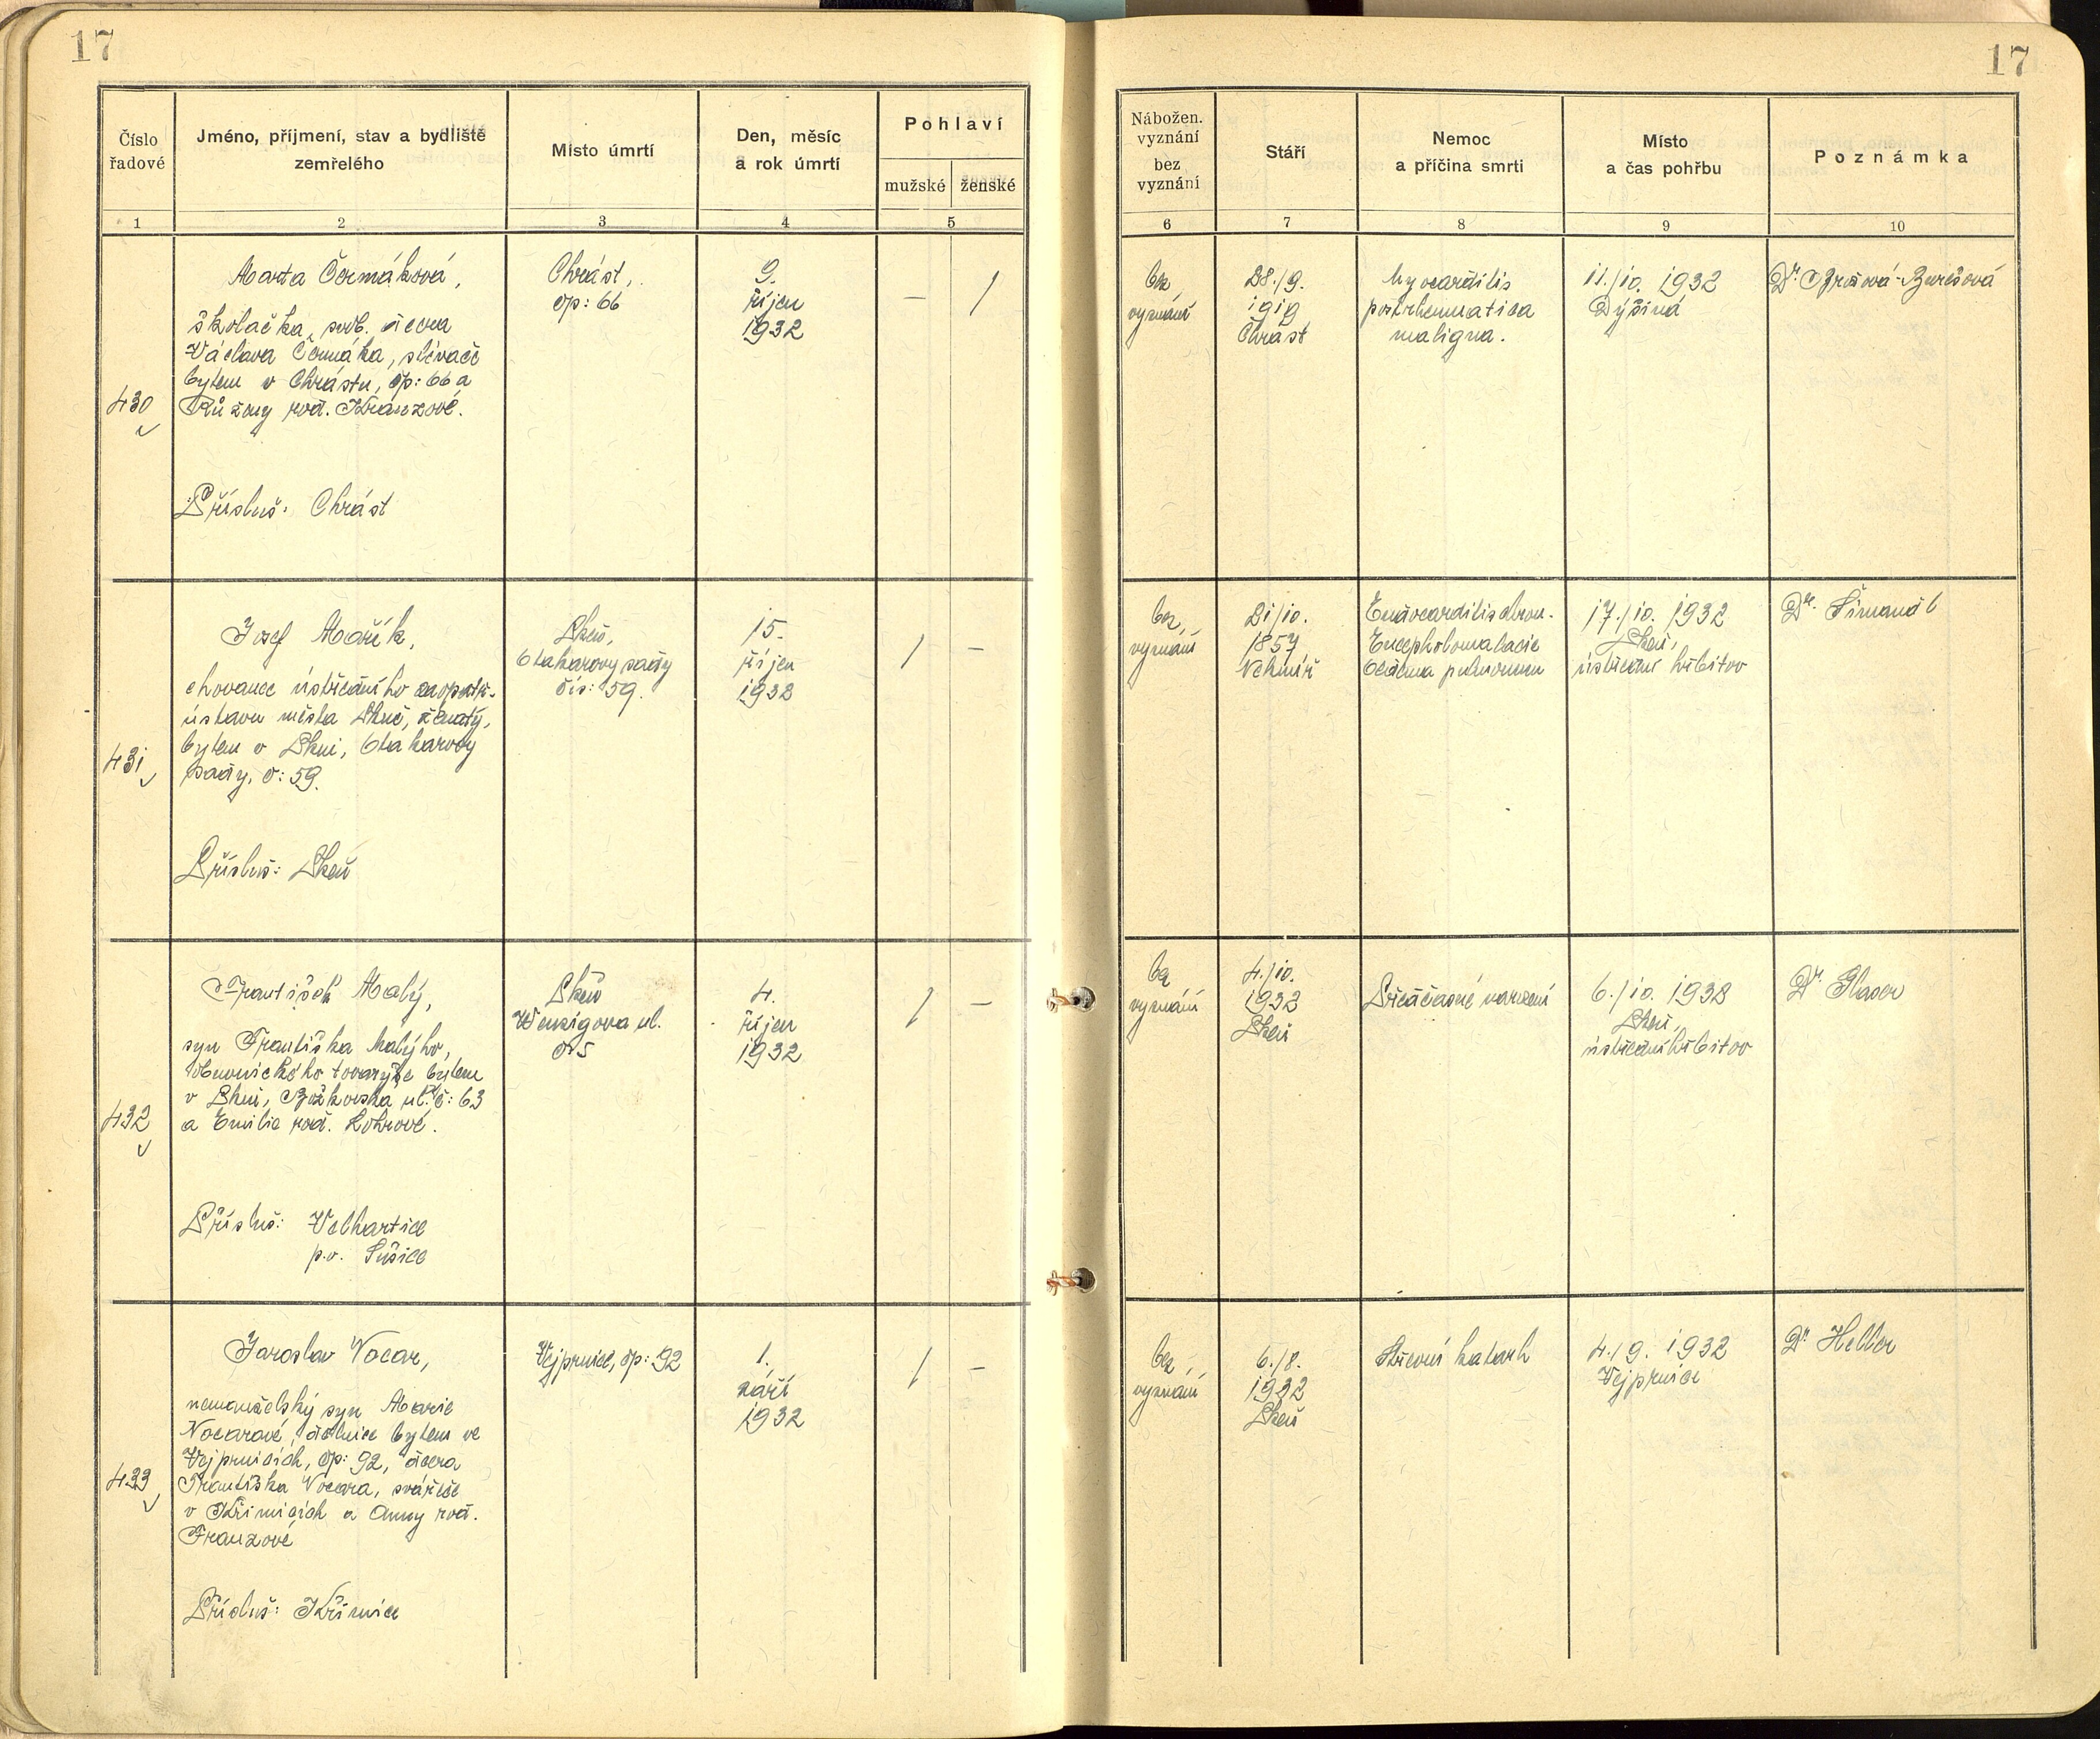 17
17
Číslo řadové
Jméno, příjmení, stav a bydliště zemřelého
Místo úmrtí
Den, měsíc a rok úmrtí
Pohlaví
mužské
ženské
Nábožen. vyznání
bez vyznání
Stáří
Nemoc a příčina smrti
Místo a čas pohřbu
Poznámka
1
2
3
4
5
6
7
8
9
10
430
Marta Čermáková,
školačka, svob. dcera
Václava Čermáka, slévače
bytem v Chrástu, čp: 66 a
Růženy roz. Kranzové.
Přísluš: Chrást
Chrást,
čp: 66
9.
říjen
1932
—
/
bez
vyznání
28./9.
1919
Chrást
Myocarditis
postrheumatica
maligna.
11./10. 1932
Dýšina
Dr.
431
Josef Mařík,
chovanec ústředního zaopatř.
ústavu města Plzně, ženatý,
bytem v Plzni, Otakarovy
sady, č: 59.
Přísluš: Plzeň
Plzeň,
Otakarovy sady
čís: 59.
15.
říjen
1932
/
—
bez
vyznání
21/10.
1857
Endocarditis chron.
Encephalomalacie
Oedema pulmonum
17./10. 1932
Plzeň,
ústřední hřbitov
Dr. Šimandl
432
František Malý,
syn Františka Malýho,
tovaryše bytem
v Plzni, Božkovská ul. č: 63
a Emilie roz.
Přísluš: Velhartice
p.o. Sušice
Plzeň
Wenzigova ul.
č 5
4.
říjen
1932
/
—
bez
vyznání
4./10.
1932
Plzeň
Předčasné narození
6./10. 1932
Plzeň,
ústřední hřbitov
Dr. Glaser
433
Jaroslav Nocar,
nemanželský syn Marie
Nocarové, dělnice bytem ve
Vejprnicích, čp: 92, dcera
Františka Nocara, svářeče
v Křimicích a Anny roz.
Franzové
Přísluš: Křimice
Vejprnice, čp: 92
1.
září
1932
/
—
bez
vyznání
6./8.
1932
Plzeň
Střevní katarh
4./9. 1932
Vejprnice
Dr Heller